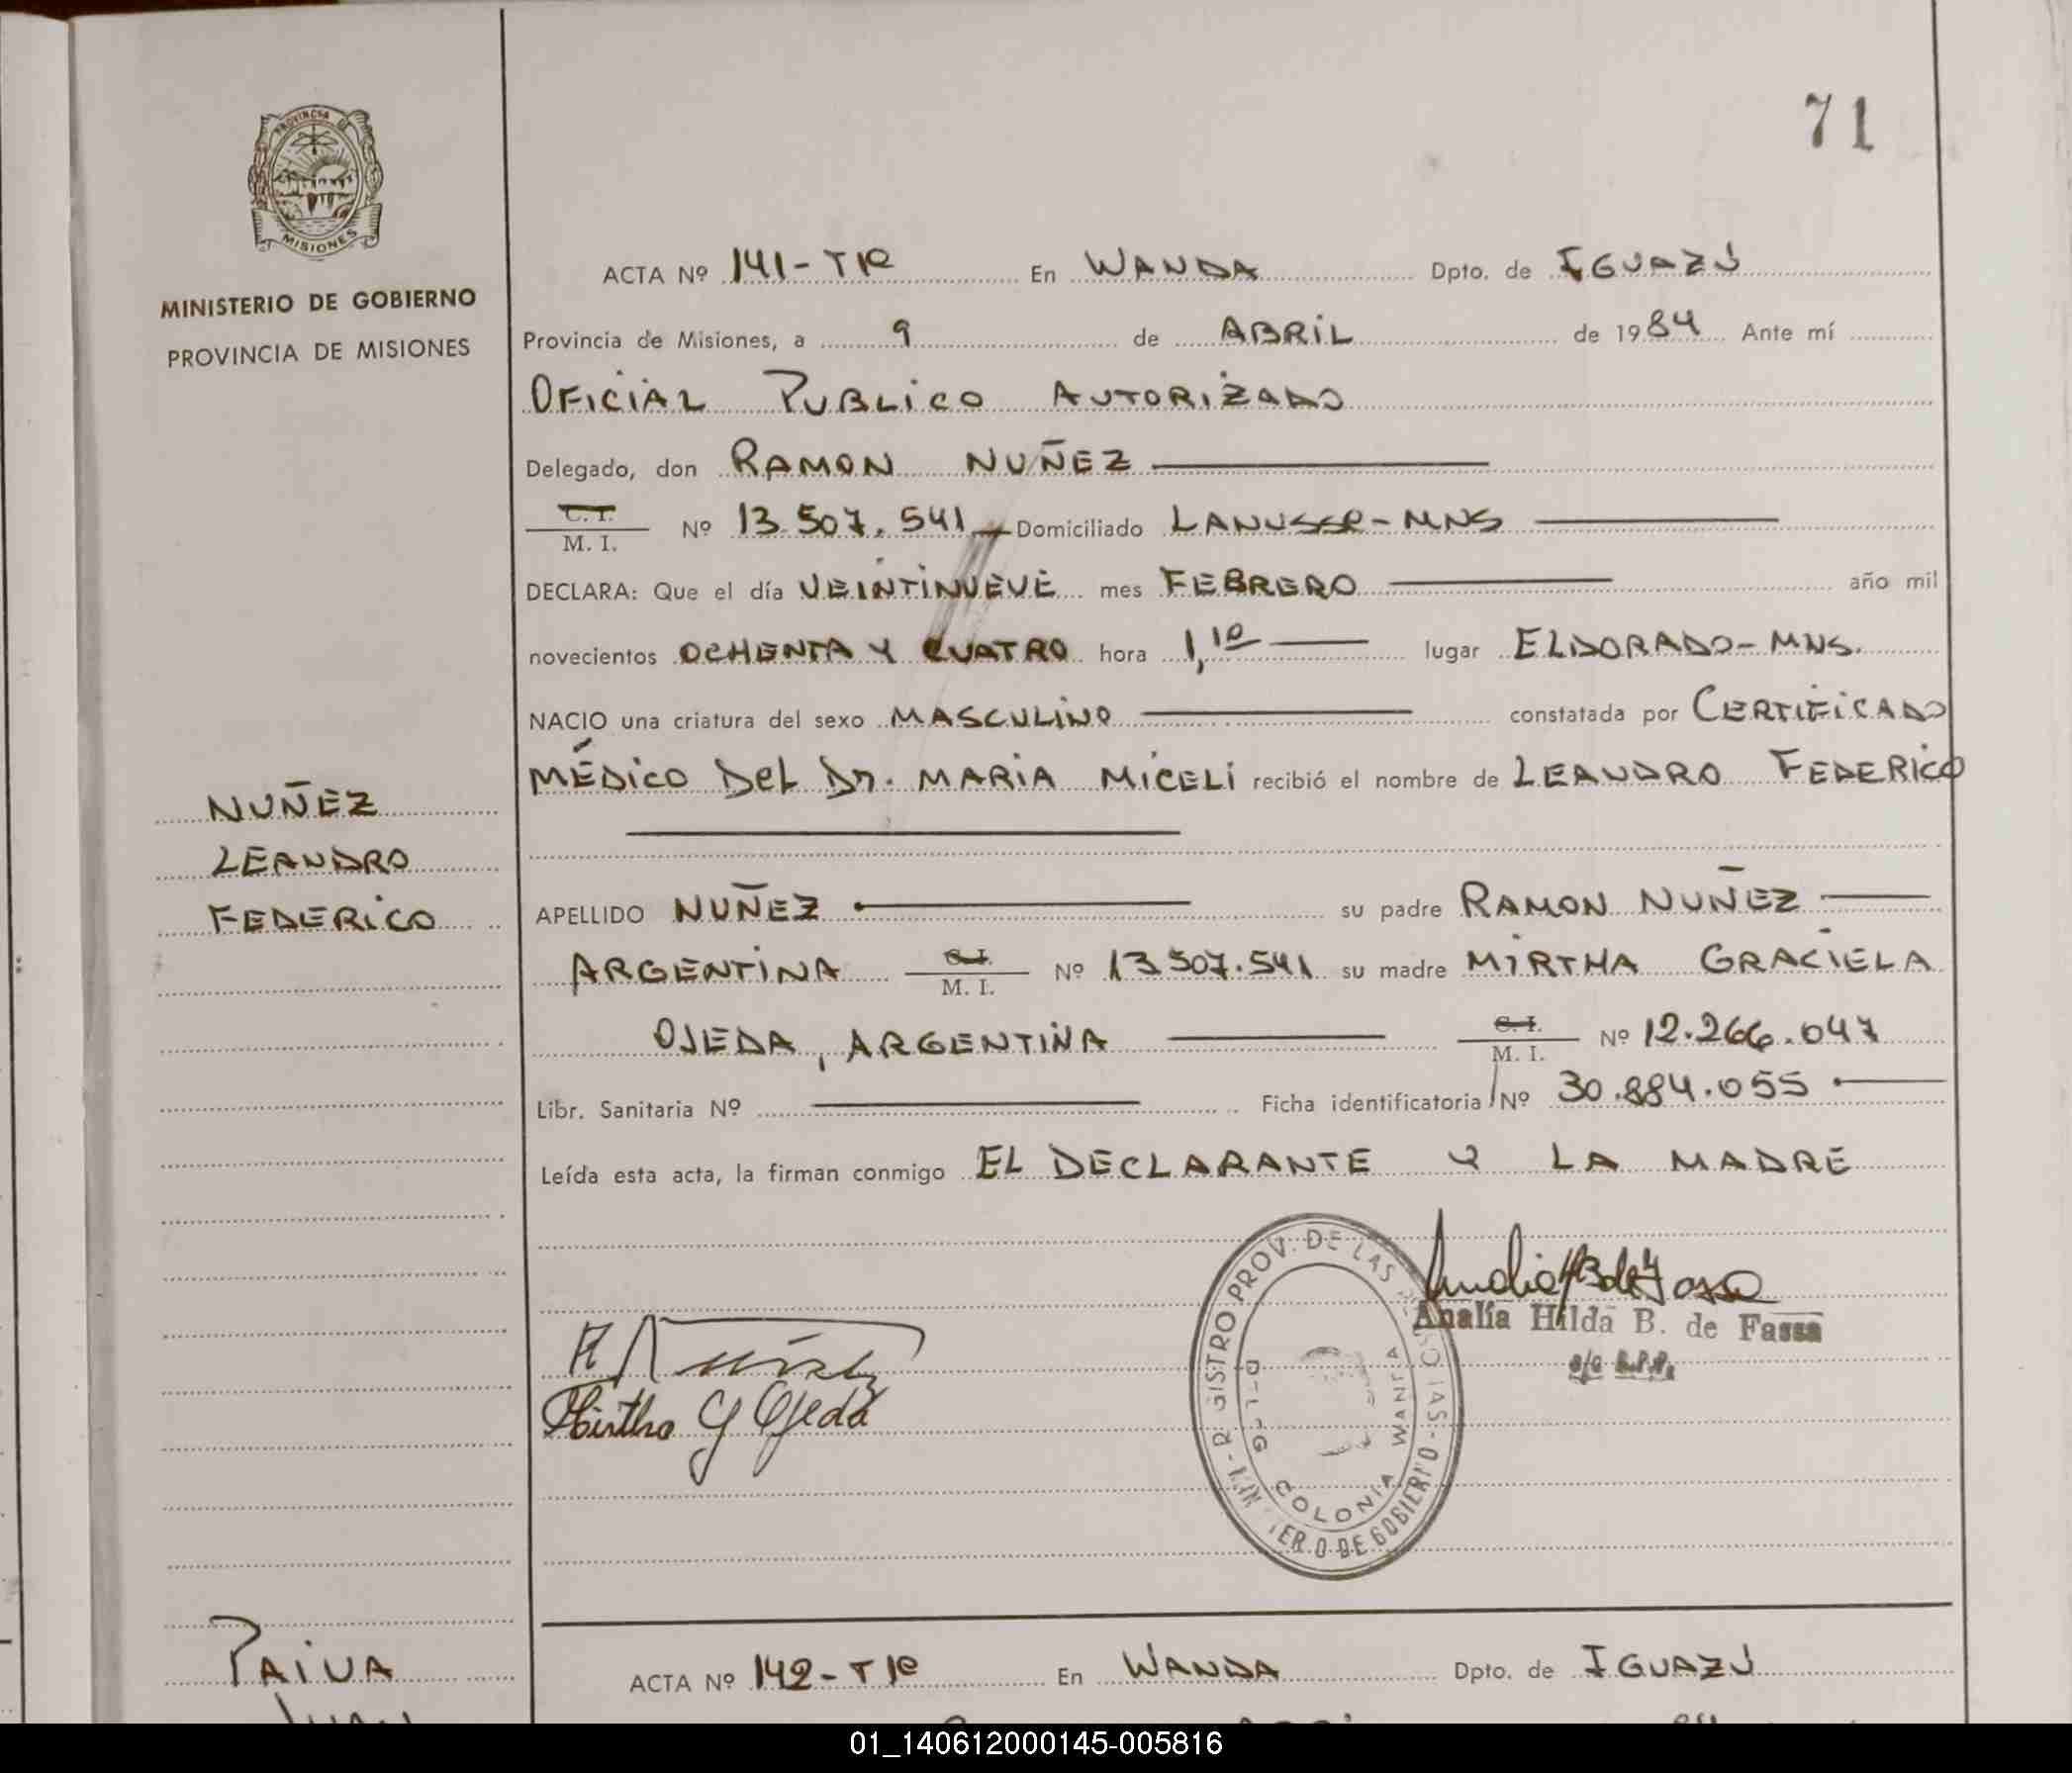 71
PROVINCIA DE
MISIONES
MINISTERIO DE GOBIERNO
PROVINCIA DE MISIONES
NUÑEZ
LEANDRO
FEDERICO
ACTA Nº 141-TR En WANDA Dpto. de IGUAZÚ
Provincia de Misiones, a 9 de ABRIL de 1984 Ante mí
OFICIAL PUBLICO AUTORIZADO
Delegado, don RAMON NUÑEZ
C. I.
M. I. Nº 13.507.541 Domiciliado LANUSSE-MNS
DECLARA: Que el día VEINTINUEVE mes FEBRERO año mil
novecientos OCHENTA Y CUATRO hora 1,10 lugar ELDORADO-MNS.
NACIO una criatura del sexo MASCULINO constatada por CERTIFICADO
MÉDICO DEL Dr. MARIA MICELI recibió el nombre de LEANDRO FEDERICO
APELLIDO NUÑEZ su padre RAMON NUÑEZ
ARGENTINA C. I. M. I. Nº 13.507.541 su madre MIRTHA GRACIELA
OJEDA, ARGENTINA C. I. M. I. Nº 12.266.047
Libr. Sanitaria Nº Ficha identificatoria Nº 30.884.055
Leída esta acta, la firman conmigo EL DECLARANTE Y LA MADRE
Mirtha G Ojeda
PROV. DE LAS
COLONIA WANDA
DE GOBIERNO
Analía Hilda B. de Fassa
PAIVA
JUAN
ACTA Nº 142-TR En WANDA Dpto. de IGUAZÚ
01_140612000145-005816